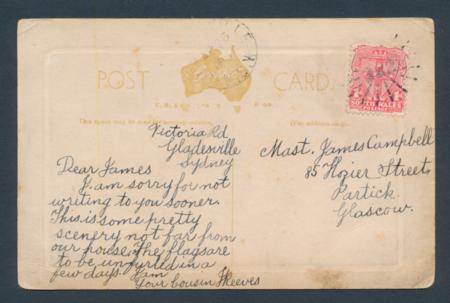 POST CARD
Victoria Rd
Gladesville
Sydney
Dear James
I am sorry for not
writing to you sooner.
This is some pretty
scenery not far from
our house. The flags are
to be unfurled in a
few days. I am
Your Cousin
Mast. James Campbell
85 Hozier Street
Partick.
Glascow.
SOUTH WALES